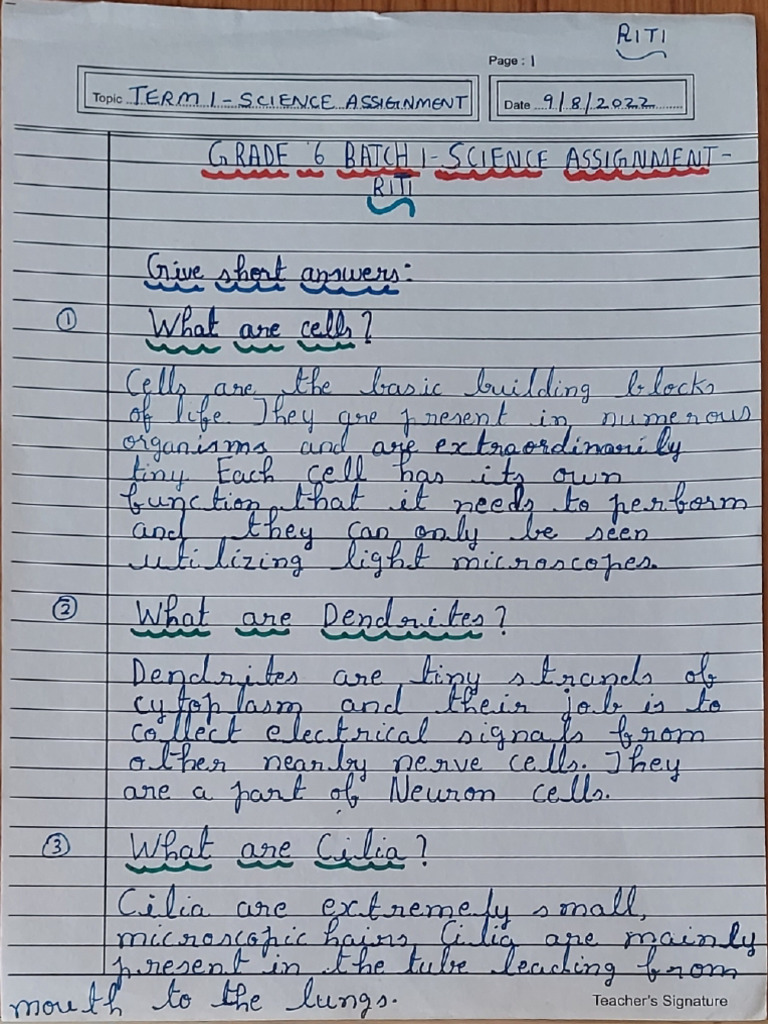 RITI
Page : 1
Topic TERM 1 - SCIENCE ASSIGNMENT
Date 9/8/2022
GRADE 6 BATCH 1 - SCIENCE ASSIGNMENT -
RITI
Give short answers:
① What are cells?
Cells are the basic building blocks
of life. They are present in numerous
organisms and are extraordinarily
tiny. Each cell has its own
function that it needs to perform
and they can only be seen
utilizing light microscopes.
② What are Dendrites?
Dendrites are tiny strands of
cytoplasm and their job is to
collect electrical signals from
other nearby nerve cells. They
are a part of Neuron cells.
③ What are Cilia?
Cilia are extremely small,
microscopic hairs. Cilia are mainly
present in the tube leading from
mouth to the lungs.
Teacher's Signature